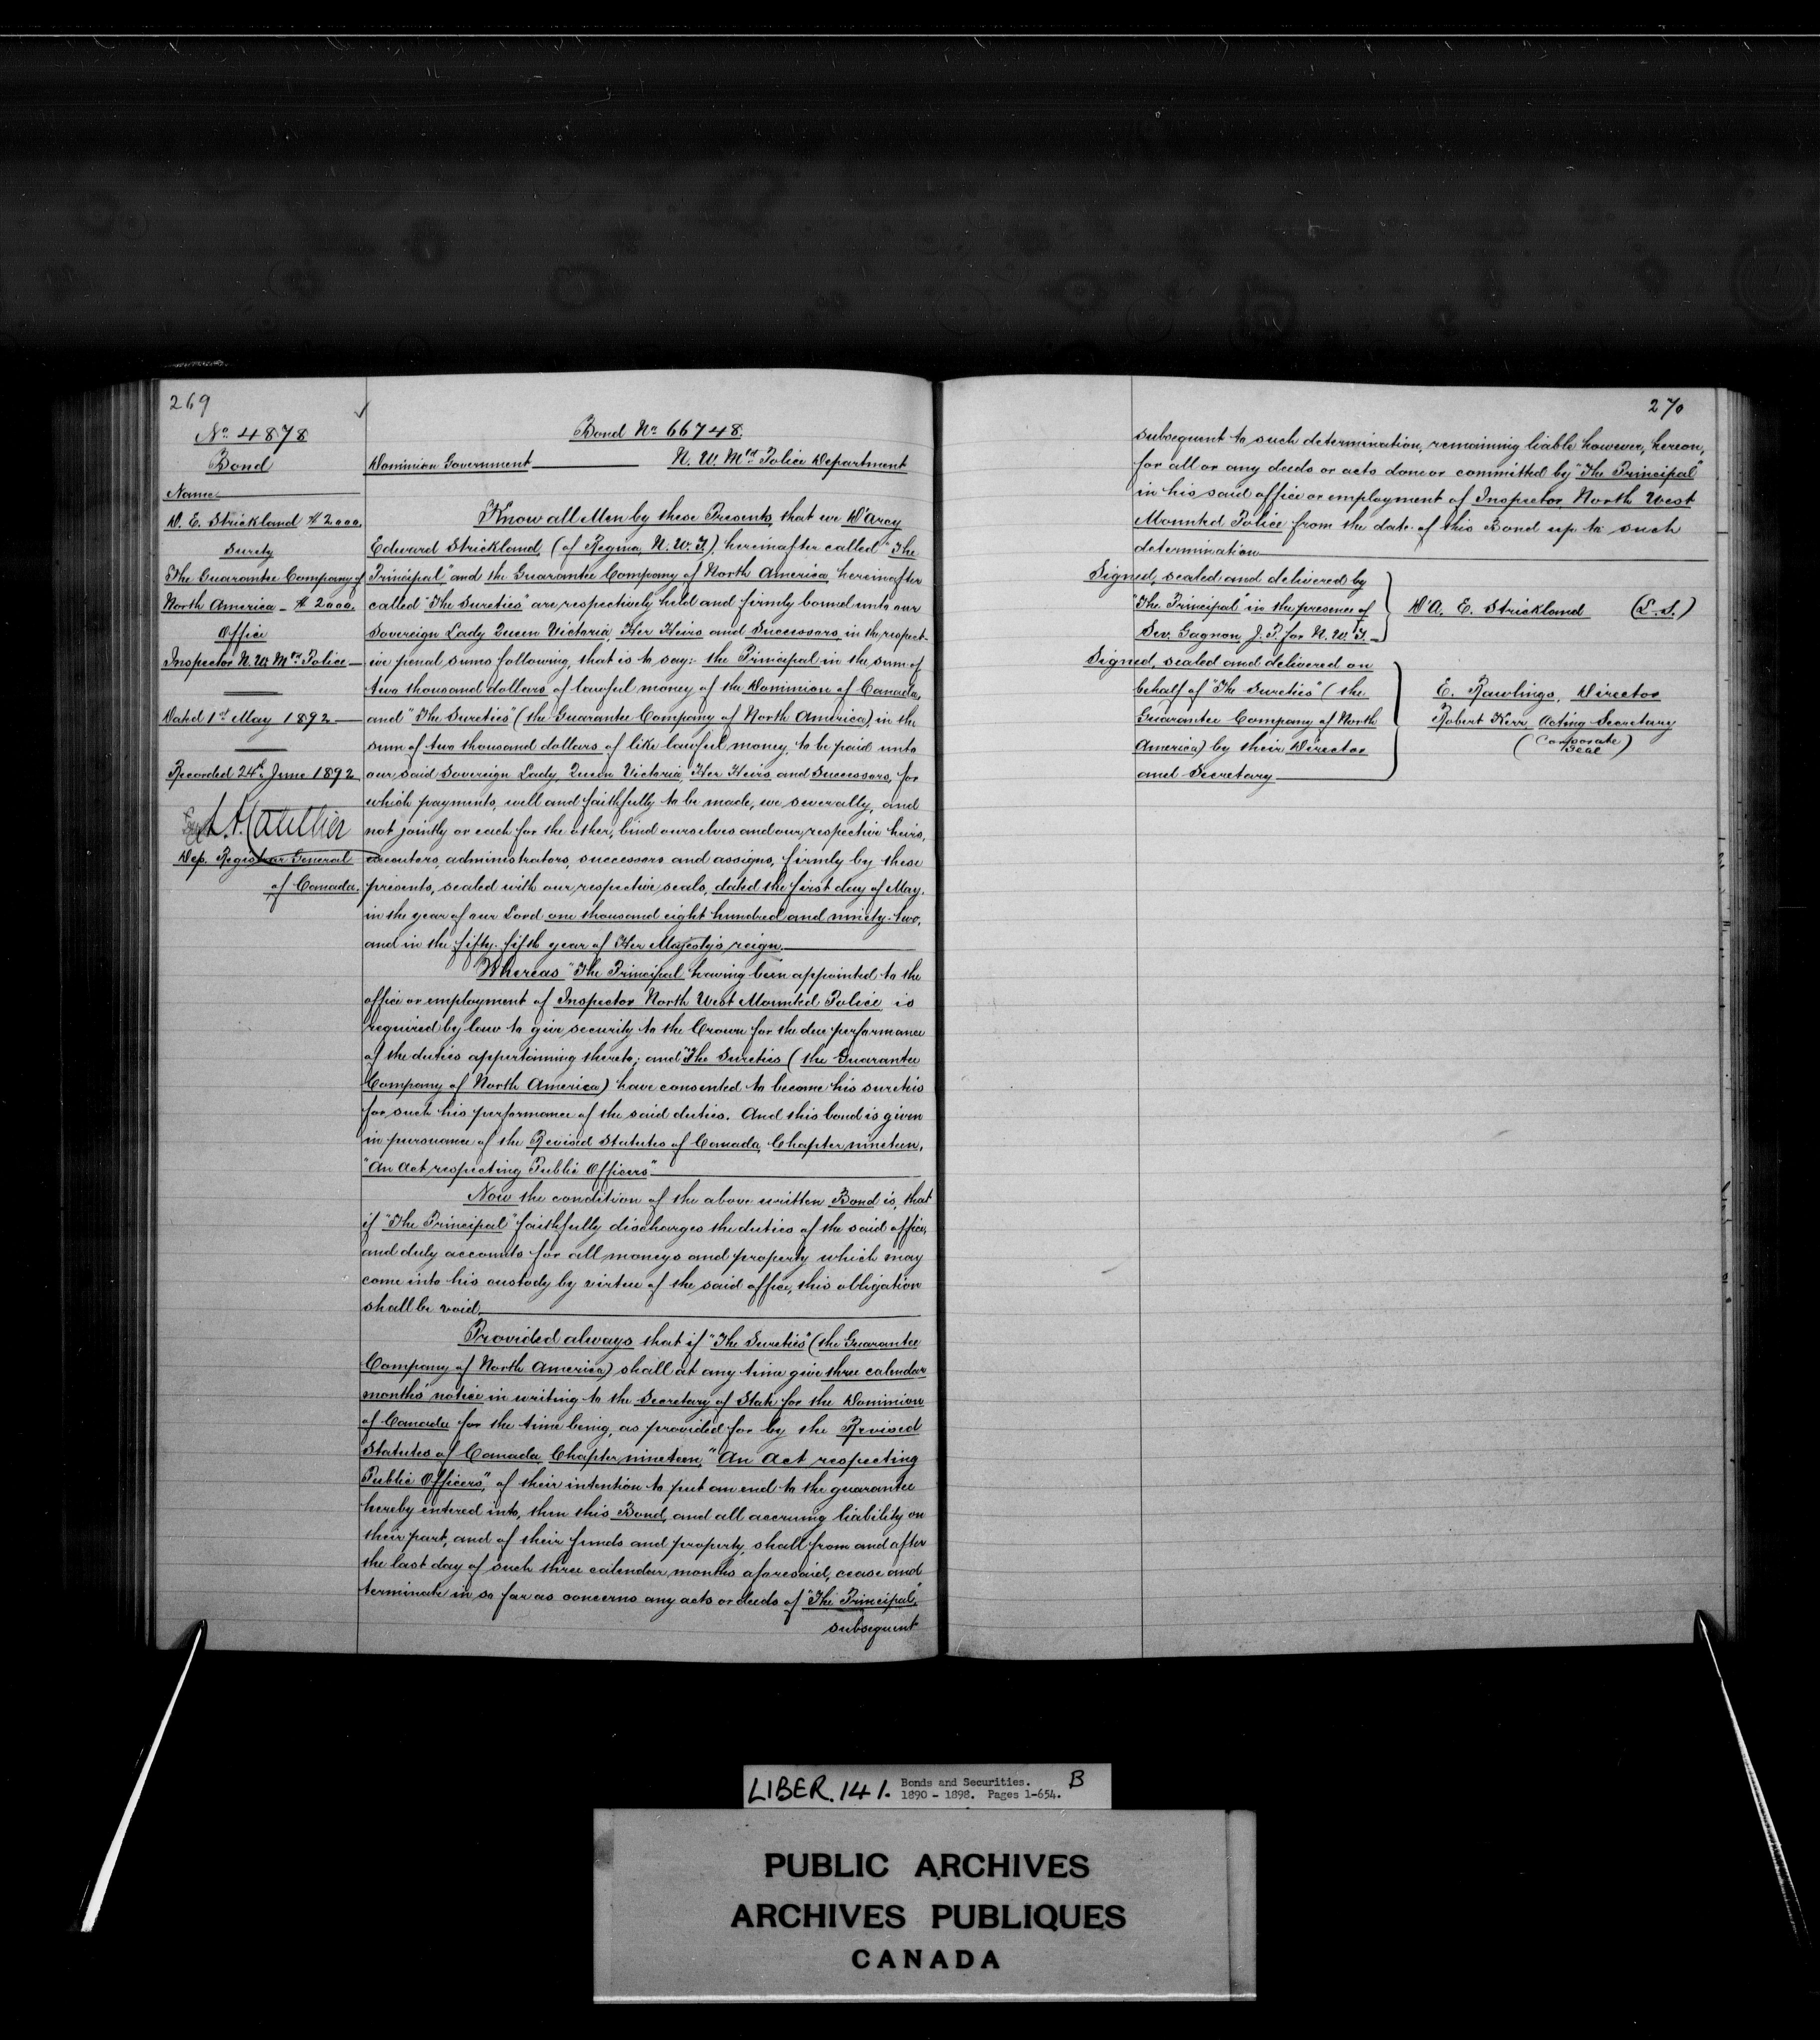 269
No 4878
Bond
Name
D. E. Strickland $2000.
Surety
The Guarantee Company of
North America - $2000.
Office
Inspector N. W. Mtd Police
Dated 1st May 1892
Recorded 24th June 1892
Dep. Registrar General
of Canada.
Bond No 66748.
Dominion Government N. W. Mtd Police Department
Know all Men by these Presents, that we D'Arcy
Edward Strickland, (of Regina, N. W. T.), hereinafter called "The
Principal" and the Guarantee Company of North America hereinafter
called "The Sureties" are respectively held and firmly bound unto our
Sovereign Lady Queen Victoria, Her Heirs and Successors, in the respect-
ive penal sums following, that is to say:- the Principal in the sum of
two thousand dollars of lawful money of the Dominion of Canada,
and "The Sureties" (the Guarantee Company of North America) in the
sum of two thousand dollars of like lawful money, to be paid unto
our said Sovereign Lady, Queen Victoria, Her Heirs and Successors, for
which payments, well and faithfully to be made, we severally, and
not jointly or each for the other, bind ourselves and our respective heirs,
executors, administrators, successors and assigns, firmly by these
presents, sealed with our respective seals, dated the first day of May,
in the year of our Lord one thousand eight hundred and ninety-two,
and in the fifty-fifth year of Her Majesty's reign.
Whereas "The Principal having been appointed to the
office or employment of Inspector North West Mounted Police is
required by law to give security to the Crown for the due performance
of the duties appertaining thereto; and "The Sureties (the Guarantee
Company of North America) have consented to become his sureties
for such his performance of the said duties. And this bond is given
in pursuance of the Revised Statutes of Canada, Chapter nineteen,
"An Act respecting Public Officers"
Now the condition of the above written Bond is, that
if "The Principal" faithfully discharges the duties of the said office,
and duly accounts for all moneys and property which may
come into his custody by virtue of the said office, this obligation
shall be void.
Provided always that if "The Sureties" (the Guarantee
Company of North America) shall at any time give three calendar
months' notice in writing to the Secretary of State for the Dominion
of Canada for the time being, as provided for by the Revised
Statutes of Canada, Chapter nineteen, "An Act respecting
Public Officers", of their intention to put an end to the guarantee
hereby entered into, then this Bond, and all accruing liability on
their part, and of their funds and property, shall from and after
the last day of such three calendar months aforesaid, cease and
terminate in so far as concerns any acts or deeds of "The Principal,"
subsequent
270
subsequent to such determination, remaining liable however, hereon,
for all or any deeds or acts done or committed by "The Principal"
in his said office or employment of Inspector North West
Mounted Police from the date of this Bond up to such
determination
Signed, sealed and delivered by
"The Principal" in the presence of
Sev. Gagnon J. P. for N. W. T.
D'A. E. Strickland (L. S.)
Signed, sealed and delivered on
behalf of "The Sureties" (the
Guarantee Company of North
America) by their Director
and Secretary
E. Rawlings, Director
Robert Kerr, Acting Secretary
(Corporate
Seal)
LIBER. 141. Bonds and Securities. B
1890 - 1898. Pages 1-654.
PUBLIC ARCHIVES
ARCHIVES PUBLIQUES
CANADA